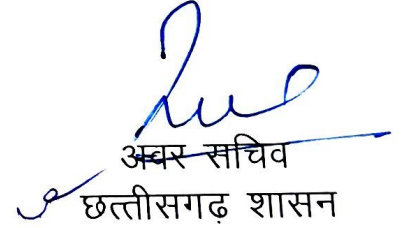 अवर सचिव
छत्तीसगढ़ शासन